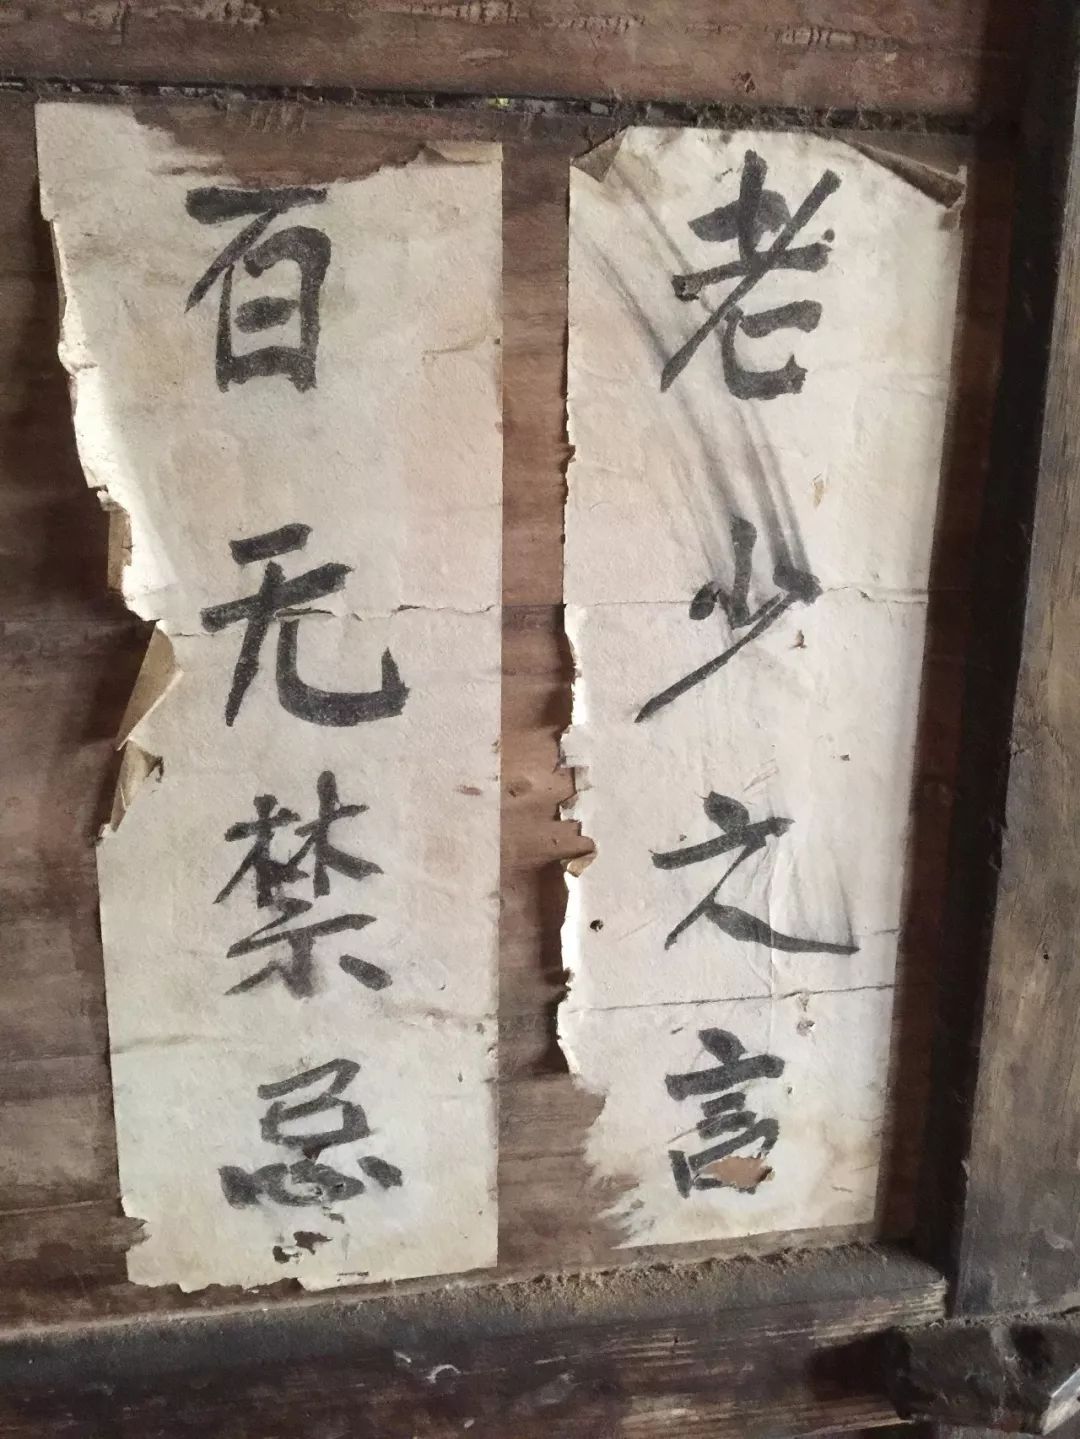 老少之言
百无禁忌